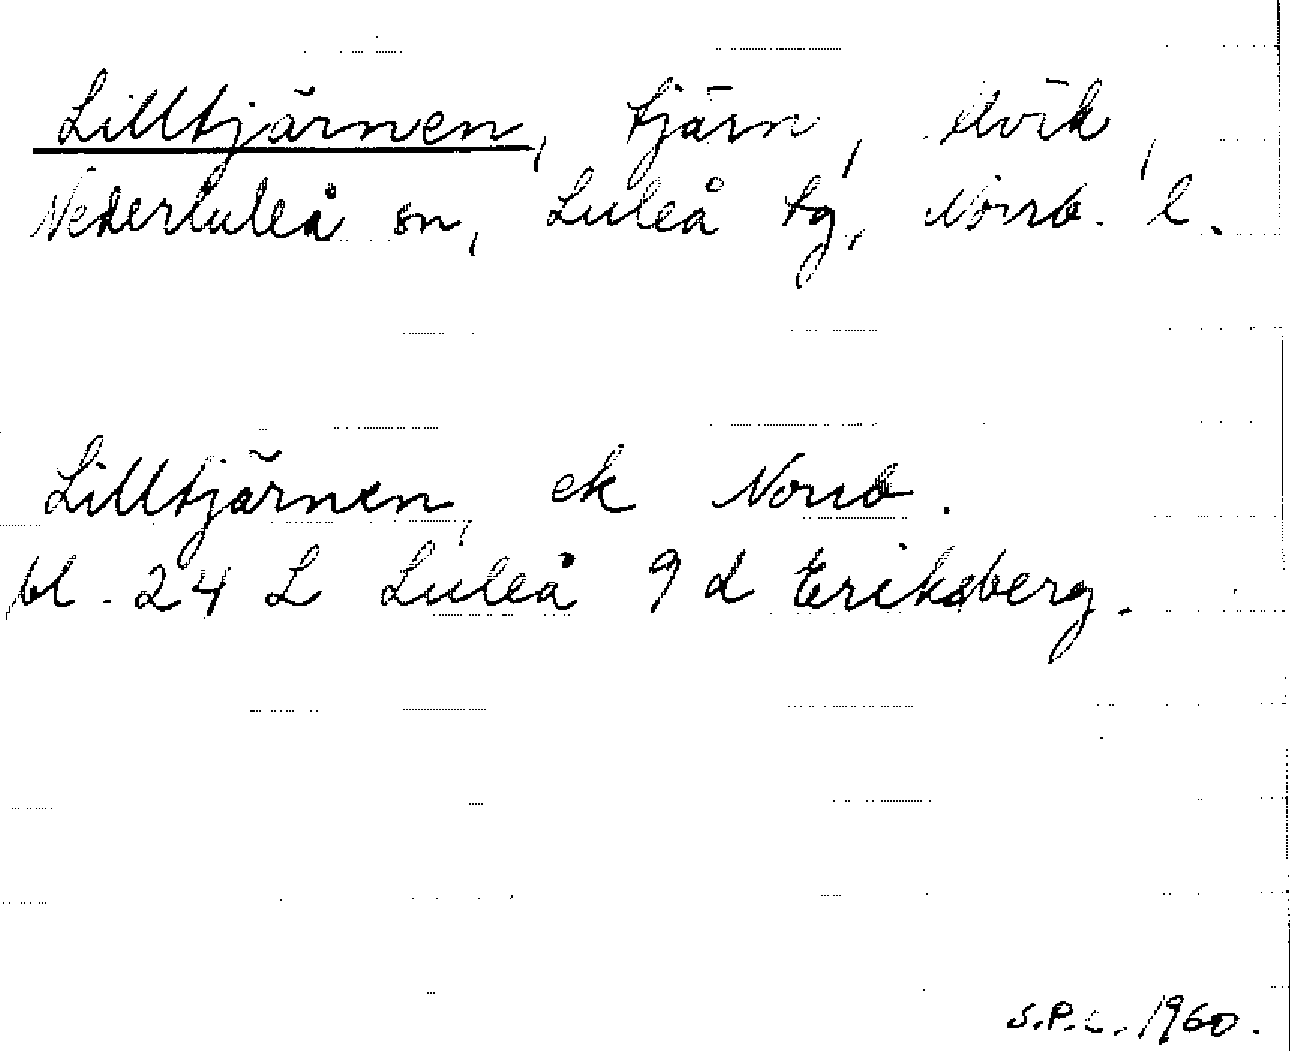 Lilltjärnen, tjärn, Avik,
Nederluleå sn, Luleå tg, Norrb. l.
Lilltjärnen, ek Norrb.
bl. 24 L Luleå 9 d Eriksberg.
S.P.L. 1960.